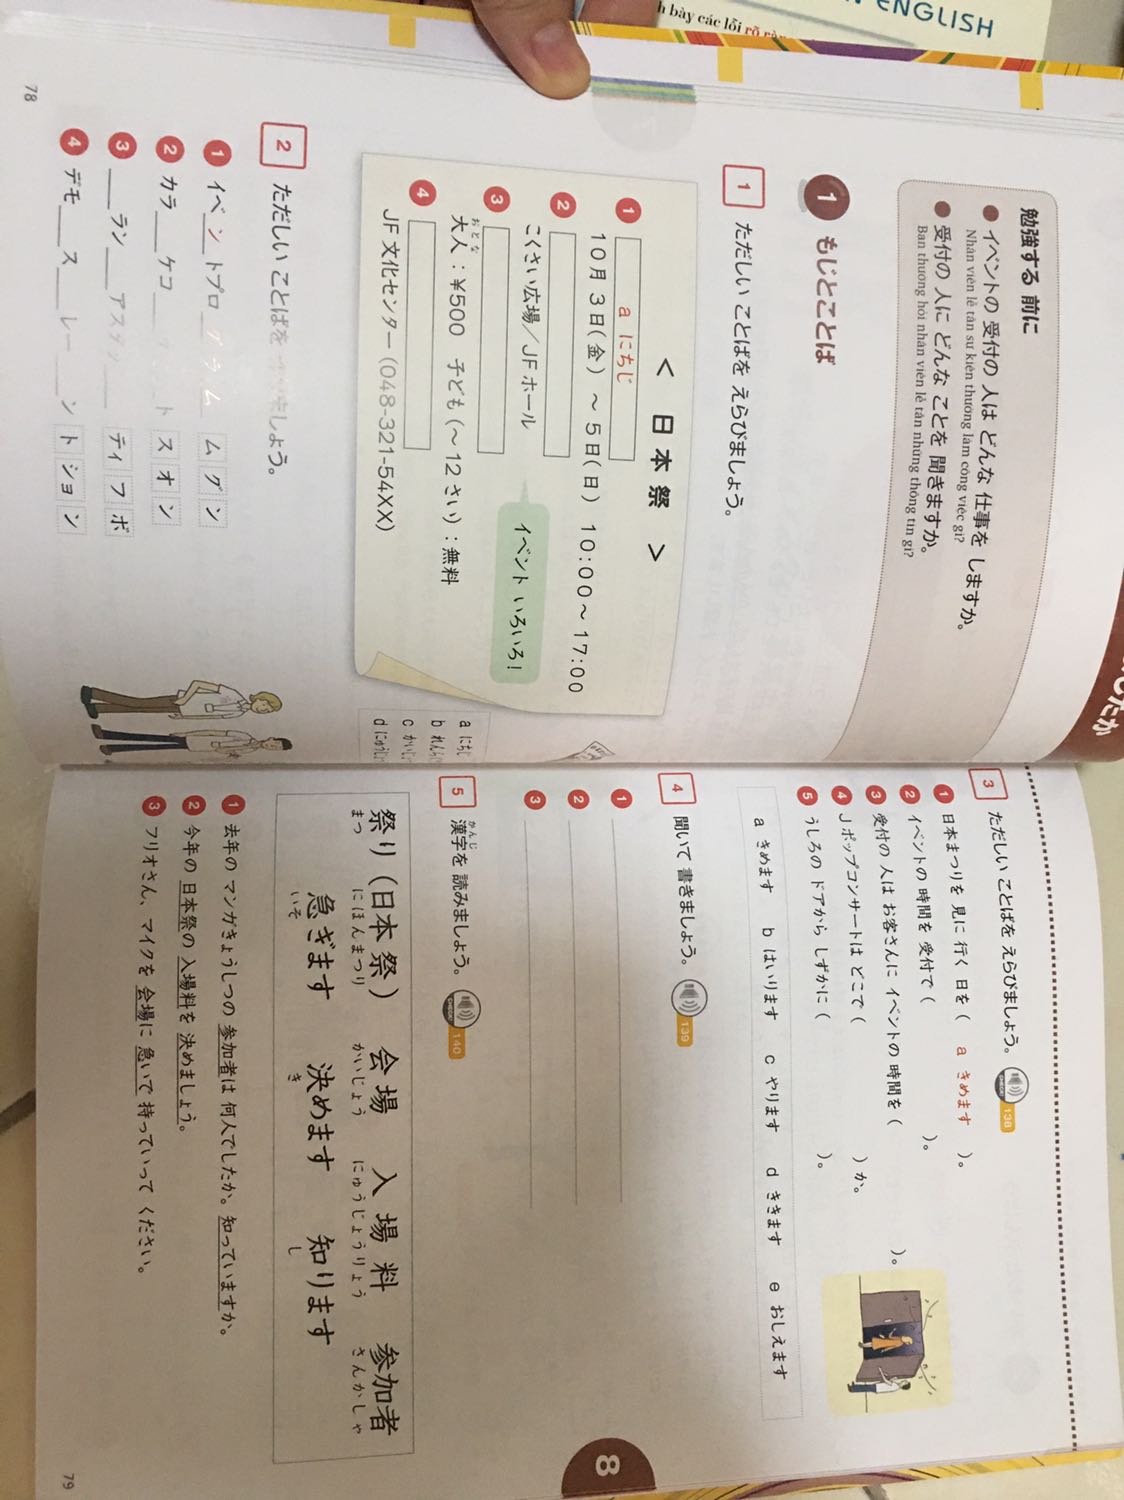 ENGLISH
h bày các lỗi rõ ràng
勉強する 前に
● イベントの 受付の 人は どんな 仕事を しますか。
Nhân viên lễ tân sự kiện thường làm công việc gì?
● 受付の 人に どんな ことを 聞きますか。
Bạn thường hỏi nhân viên lễ tân những thông tin gì?
1 もじとことば
1 ただしい ことばを えらびましょう。
＜ 日本祭 ＞
1 a にちじ
10月3日(金)～5日(日) 10:00～17:00
2
こくさい広場／JFホール
イベント いろいろ！
3
おとな
大人：¥500 子ども(～12さい)：無料
4
JF文化センター(048-321-54XX)
a にちじ
b れんらく
c かいじょ
d にゅうじょ
2 ただしい ことばを しょう。
1 イベ ン トプロ グ ラ ム ム グ ン
2 カラ___ケコ___ ト ス オ ン
3 ___ラン___ア ___ ティ フ ボ
4 デモ___ス___レー___ン ト ショ ン
78
3 ただしい ことばを えらびましょう。 138
1 日本まつりを 見に 行く 日を ( a きめます )。
2 イベントの 時間を 受付で ( )。
3 受付の 人は お客さんに イベントの 時間を ( )。
4 Jポップコンサートは どこで ( )か。
5 うしろの ドアから しずかに ( )。
a きめます b はいります c やります d ききます e おしえます
4 聞いて 書きましょう。 139
1
2
3
かんじ
5 漢字を 読みましょう。 140
祭り(日本祭) 会場 入場料 参加者
まつ にほんまつり かいじょう にゅうじょうりょう さんかしゃ
急ぎます 決めます 知ります
いそ き し
1 去年の マンガきょうしつの 参加者は 何人でしたか。知っていますか。
2 今年の 日本祭の 入場料を 決めましょう。
3 フリオさん、マイクを 会場に 急いで 持っていって ください。
8
79